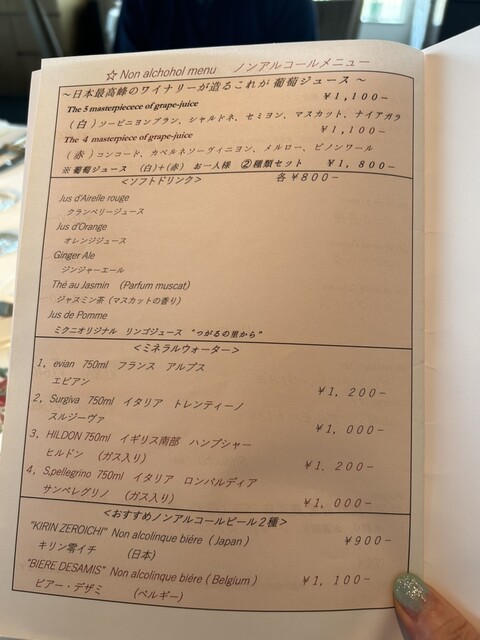 ☆ Non alchohol menu ノンアルコールメニュー
～日本最高峰のワイナリーが造るこれが 葡萄ジュース ～
The 5 masterpiecece of grape-juice ￥1,100−
(白) ソービニヨンブラン、シャルドネ、セミヨン、マスカット、ナイアガラ
The 4 masterpiece of grape-juice ￥1,100−
(赤) コンコード、カベルネソーヴィニヨン、メルロー、ピノンワール
※葡萄ジュース (白)+(赤) お一人様 ②種類セット ￥1, 800−
<ソフトドリンク> 各￥800−
Jus d'Airelle rouge
クランベリージュース
Jus d'Orange
オレンジジュース
Ginger Ale
ジンジャーエール
Thé au Jasmin (Parfum muscat)
ジャスミン茶 (マスカットの香り)
Jus de Pomme
ミクニオリジナル リンゴジュース “つがるの里から”
<ミネラルウォーター>
1, evian 750ml フランス アルプス
エビアン ￥1, 200−
2, Surgiva 750ml イタリア トレンティーノ
スルジーヴァ ￥1, 000−
3, HILDON 750ml イギリス南部 ハンプシャー
ヒルドン (ガス入り) ￥1. 200−
4, S,pellegrino 750ml イタリア ロンバルディア
サンペレグリノ (ガス入り) ￥1, 000−
<おすすめノンアルコールビール２種>
"KIRIN ZEROICHI" Non alcolinque biére ( Japan ) ￥900−
キリン零イチ (日本)
"BIERE DESAMIS" Non alcolinque biére ( Belgium ) ￥1, 100−
ビアー・デザミ (ベルギー)